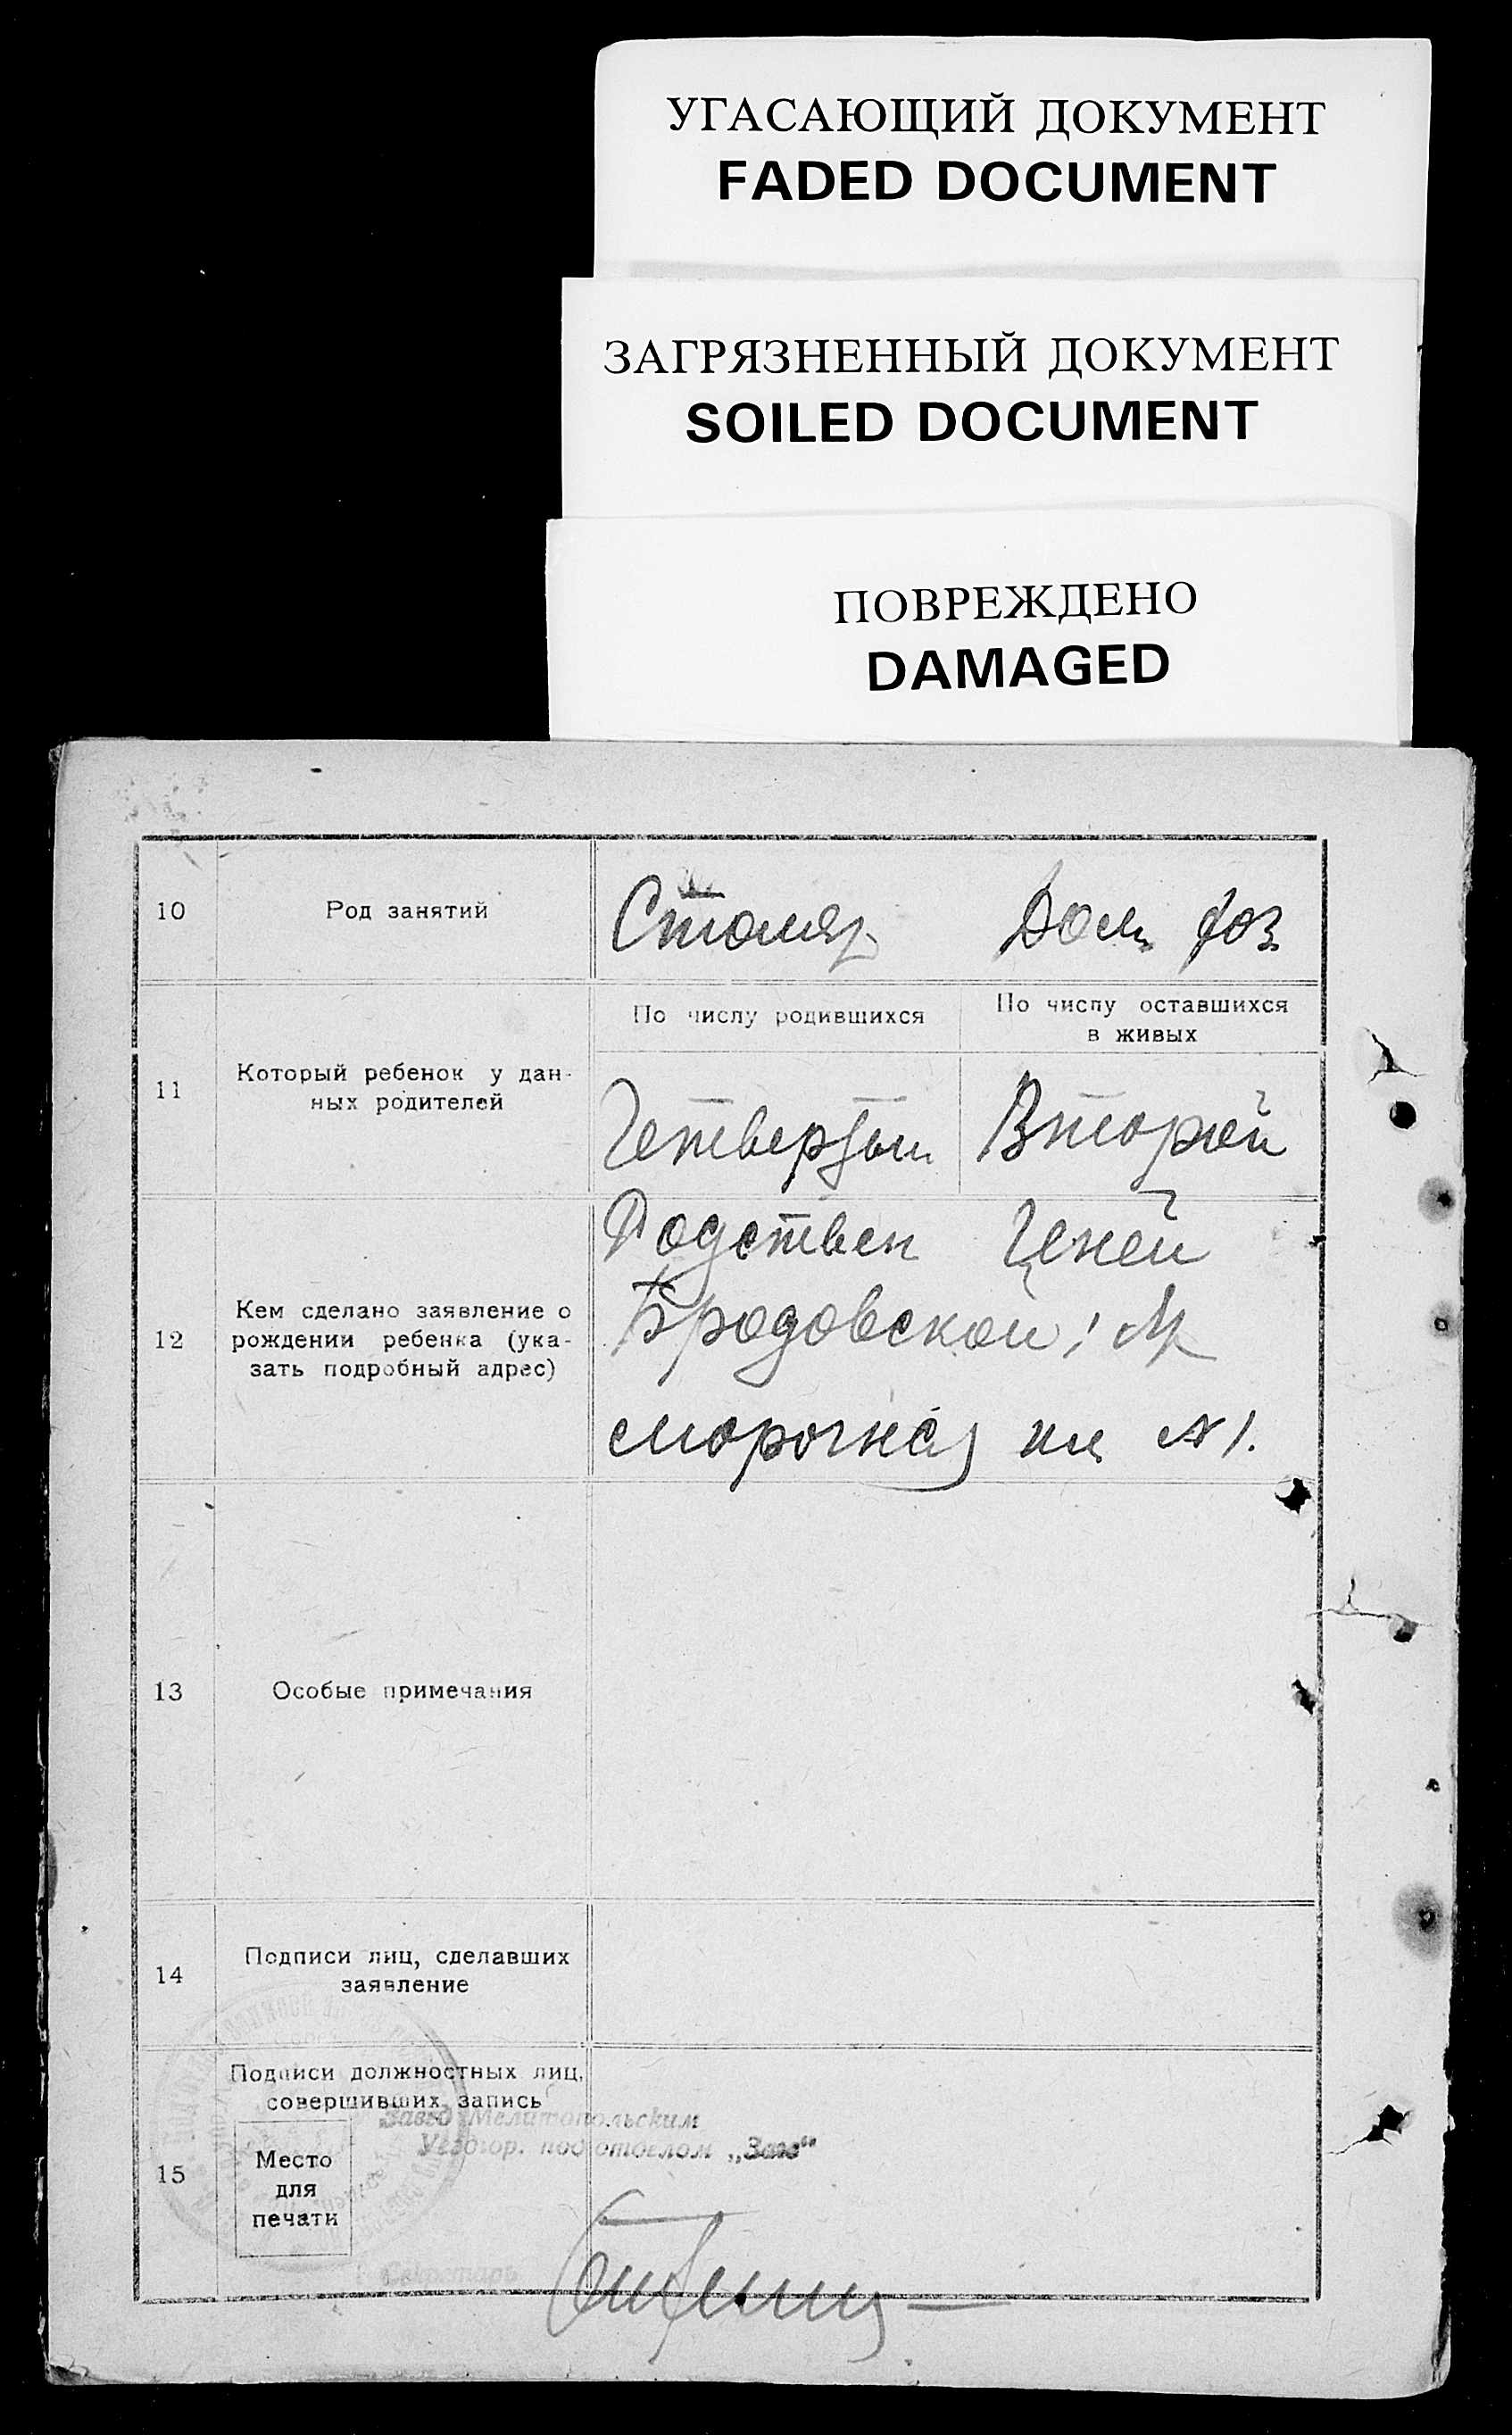 УГАСАЮЩИЙ ДОКУМЕНТ
FADED DOCUMENT
ЗАГРЯЗНЕННЫЙ ДОКУМЕНТ
SOILED DOCUMENT
ПОВРЕЖДЕНО
DAMAGED
10 Род занятий Столяр Дом хоз
По числу родившихся
По числу оставшихся
в живых
11 Который ребенок у дан-
ных родителей
Четвертый Второй
Родствен Ценей
12 Кем сделано заявление о
рождении ребенка (ука-
зать подробный адрес)
Бродовской
ул №1.
13 Особые примечания
14 Подписи лиц, сделавших
заявление
15 Подписи должностных лиц,
совершивших запись
Завед Мелитопольским
Уездгор. подотделом „Загс“
Место
для
печати
Секретарь